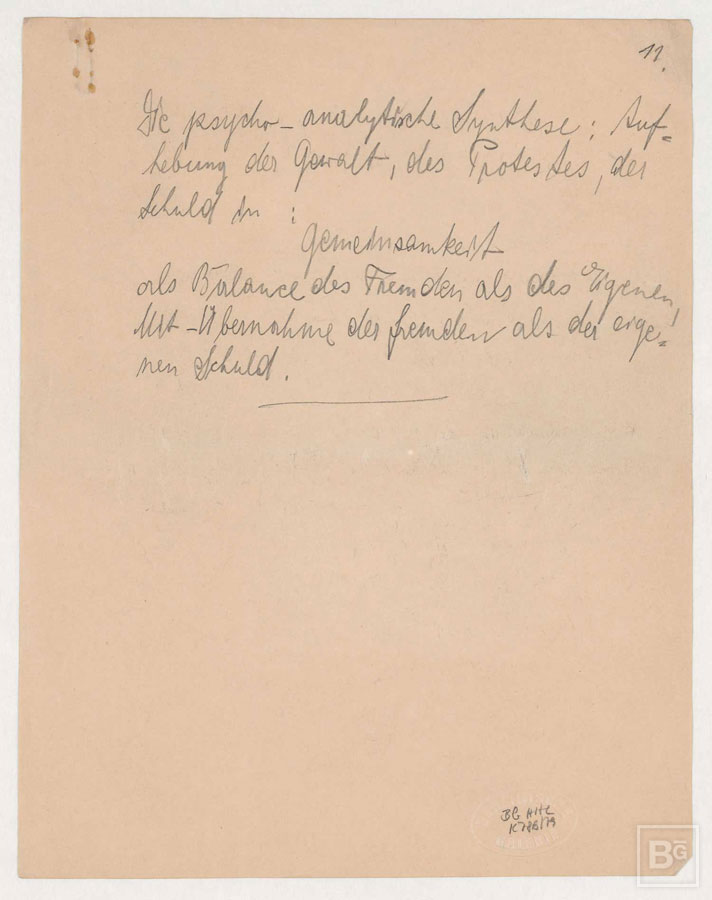 11.
Die psycho-analytische Synthese: Auf-
hebung der Gewalt, des Protestes, der
Schuld in :
Gemeinsamkeit
als Balance des Fremden als des Eigenen,
Mit-Übernahme der fremden als der eige-
nen Schuld.
BG HHC
K 726/79
BG